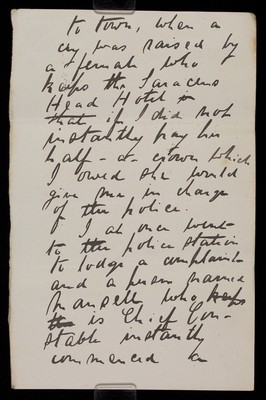 to town, when a
cry was raised by
a female who
keeps the Saracens
Head Hotel in
that if I did not
instantly pay her
half-a-crown which
I owed she would
give me in charge
of the police.
I at once went
to the police station
to lodge a complaint
and a person named
Mansell, who keeps
the is Chief Con-
stable instantly
commenced a